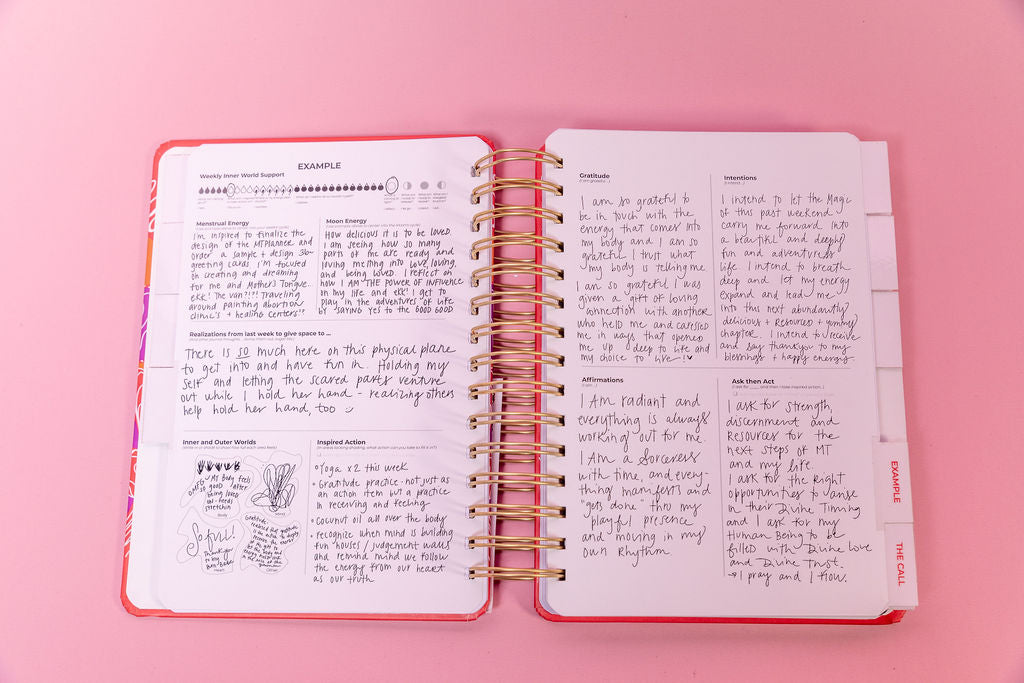 EXAMPLE
Weekly Inner World Support
Menstrual Energy
I'm inspired to finalize the
design of the MTPlanner and
order a sample + design 36-
greeting cards I'm focused
on creating and dreaming
for me and Mother's Tongue.
EKK! The van?!?! Traveling
around painting abortion
clinic's + healing centers!?
Moon Energy
How delicious it is to be loved.
I am seeing how so many
parts of me are ready and
loving melting into love, loving,
and being loved. I reflect on
how I AM THE POWER OF INFLUENCE
in my life and EKK! I get to
play in the adventures of life
by SAYING YES to the GOOD GOOD
Realizations from last week to give space to ...
There is so much here on this physical plane
to get into and have fun in. Holding my
self and letting the scared parts venture
out while I hold her hand - realizing others
help hold her hand, too :)
Inner and Outer Worlds
OMFG MY Body feels
so good after
being loved
on - needs
stretchin
Body
Mind
So full!
Thank you
Heart
Gratitude
Other
Inspired Action
Yoga x2 this week
• Gratitude practice - not just as
an action item but a practice
in receiving and feeling
• Coconut oil all over the body
• recognize when mind is building
fun houses / judgement walls
and remind mind we follow
the energy from our heart
as our truth
Gratitude
(I am grateful...)
I am so grateful to
be in touch with the
energy that comes into
my body and I am so
grateful I trust what
my body is telling me
I am so grateful I was
given a gift of loving
connection with another
who held me and caressed
me in ways that opened
me up deep to life and
my choice to live -!♥
Intentions
(I intend...)
I intend to let the Magic
of this past weekend
carry me forward into
a beautiful and deeply
fun and adventures
life. I intend to breath
deep and let my energy
expand and lead me
into this next abundantly
delicious + resourced + yummy
chapter. I intend to receive
and say thankyou to my
blessings + happy energy.
Affirmations
(I am...)
I AM radiant and
everything is always
working out for me.
I Am a Sorceress
with time, and every-
thing manifests and
"gets done" thru my
playful presence
and moving in my
own Rhythm
Ask then Act
I ask for strength,
discernment and
Resources for the
next steps of MT
and my life.
I ask for the Right
opportunities to arise
in their Divine Timing
and I ask for my
Human Being to be
filled with Divine love
and Divine Trust.
→ I pray and I flow.
EXAMPLE
THE CALL